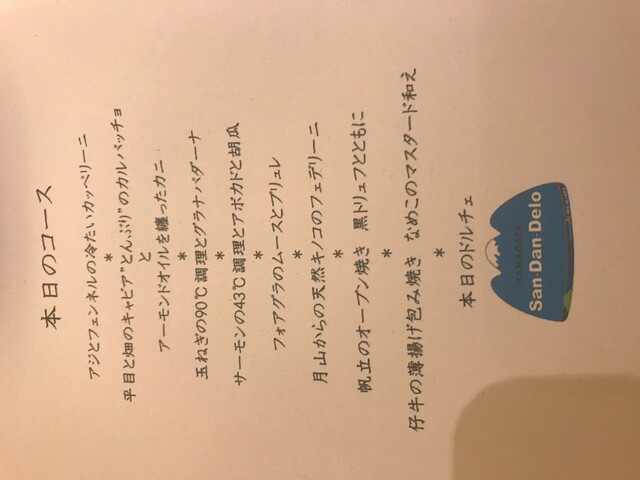 本日のコース
アジとフェンネルの冷たいカッペリーニ
*
平目と畑のキャビア"とんぶり"のカルパッチョ
と
アーモンドオイルを纏ったカニ
*
玉ねぎの90℃調理とグラナパダーナ
*
サーモンの43℃調理とアボカドと胡瓜
*
フォアグラのムースとブリュレ
*
月山からの天然キノコのフェデリーニ
*
帆立のオーブン焼き 黒トリュフとともに
*
仔牛の薄揚げ包み焼き なめこのマスタード和え
*
本日のドルチェ
YAMAGATA
San-Dan-Delo